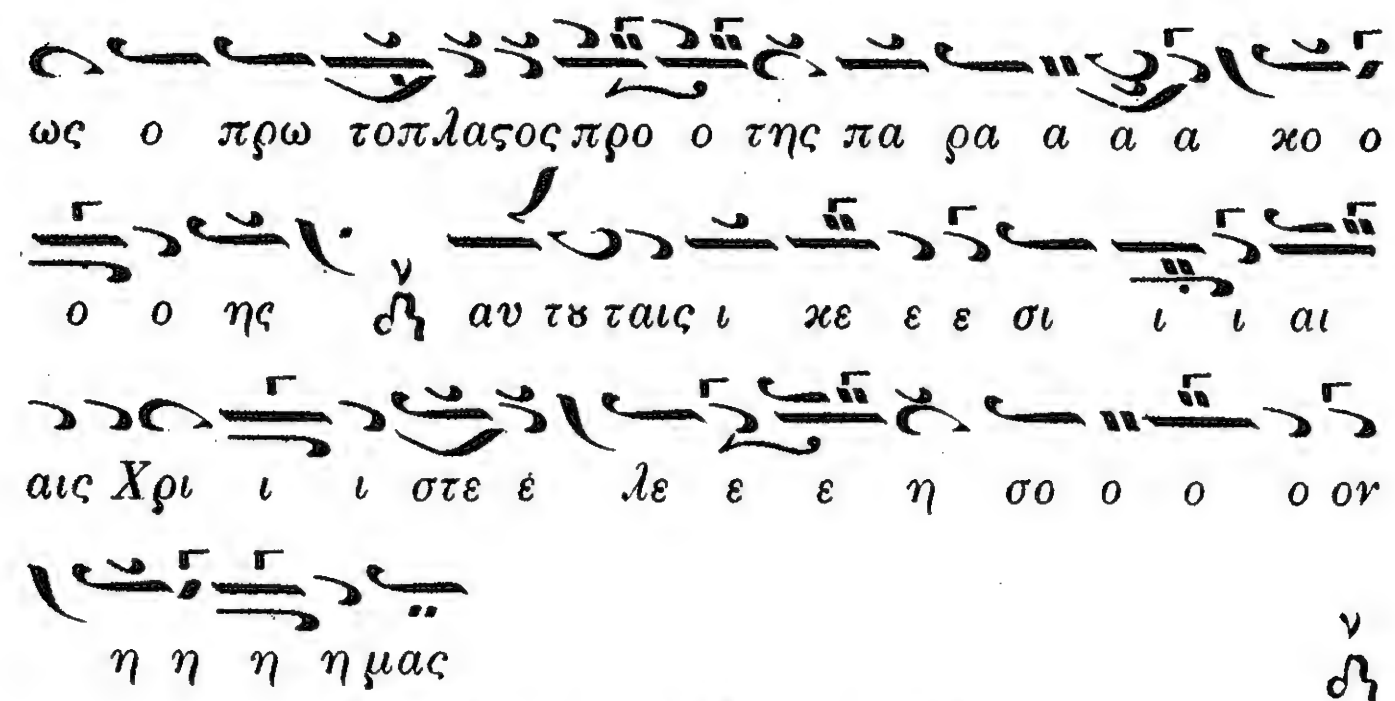 ως ο πρω τοπλαϛος προ ο της πα ρα α α α κο ο
ο ο ης ν αυ τȣ ταις ι κε ε ε σι ι ι αι
αις Χρι ι ι στε έ λε ε ε η σο ο ο ο ον
η η η η μας ν